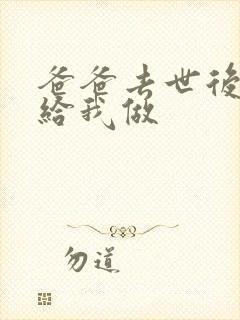 爸爸去世後
給我做
勿道